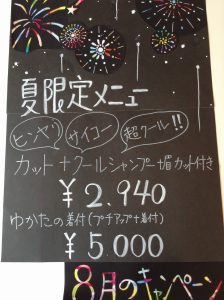 夏限定メニュー
ヒンヤリ サイコー 超クール!!
カット+クールシャンプー+眉カット付き
¥2.940
ゆかたの着付(プチアップ+着付)
¥5000
8月のキャンペーン